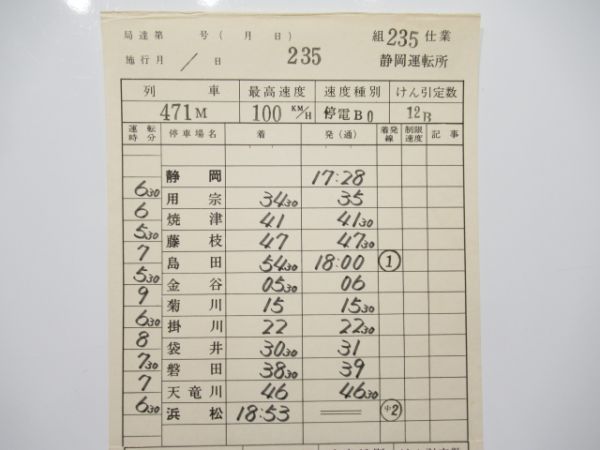 局達第 号( 月 日) 235 組235仕業
施行月 / 日 静岡運転所
列 車 最高速度 速度種別 けん引定数
471M 100 KM/H 停電B0 12B
運転時分 停車場名 着 発(通) 着発線 制限速度 記事
静岡 17:28
6 30
用宗 34 30 35
6
焼津 41 41 30
5 30
藤枝 47 47 30
7
島田 54 30 18:00 ①
5 30
金谷 05 30 06
9
菊川 15 15 30
6 30
掛川 22 22 30
8
袋井 30 30 31
7 30
磐田 38 30 39
7
天竜川 46 46 30
6 30
浜松 18:53 中2